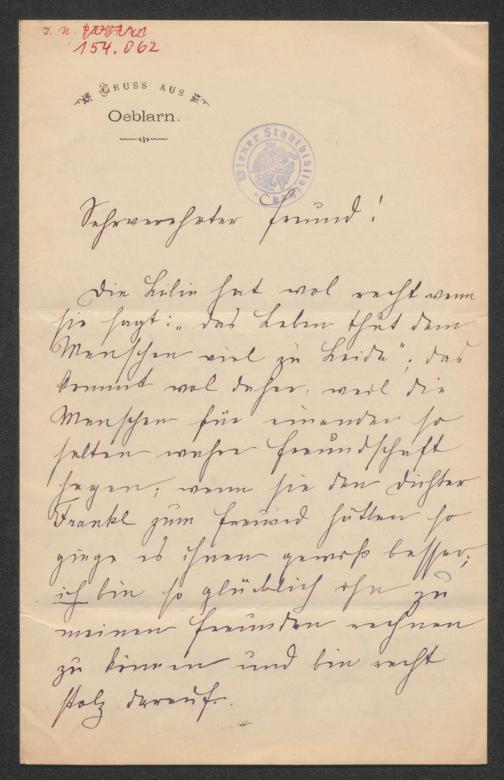 I. N.
154.062
GRUSS AUS
Oeblarn.
Wiener Stadtbibliothek
Sehrverehrter Freund!
Die Lilie hat wol recht wenn
sie sagt: „das Leben thut dem
Menschen viel zu Leide"; das
kommt wol daher, weil die
Menschen für einander so
selten wahre Freundschaft
hegen; wenn sie den Dichter
Frankl zum Freund hätten so
ginge es ihnen gewiß besser;
ich bin so glücklich ihn zu
meinen Freunden rechnen
zu können und bin recht
stolz darauf.